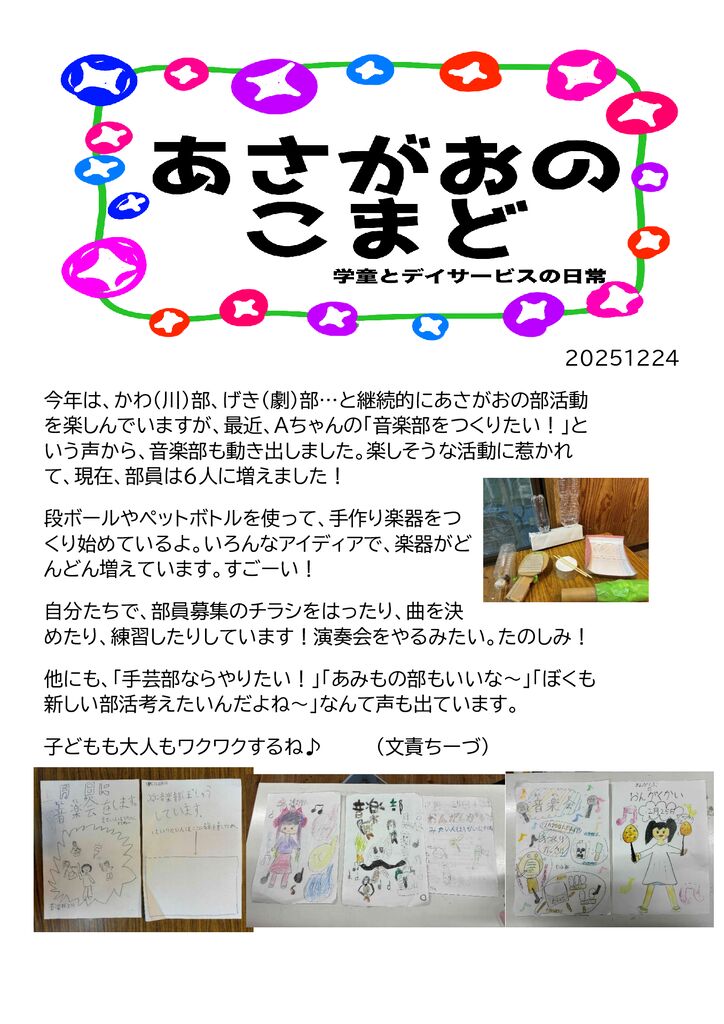 あさがおの
こまど
学童とデイサービスの日常
20251224
今年は、かわ(川)部、げき(劇)部…と継続的にあさがおの部活動
を楽しんでいますが、最近、Aちゃんの「音楽部をつくりたい!」と
いう声から、音楽部も動き出しました。楽しそうな活動に惹かれ
て、現在、部員は6人に増えました!
段ボールやペットボトルを使って、手作り楽器をつ
くり始めているよ。いろんなアイディアで、楽器がど
んどん増えています。すごーい!
自分たちで、部員募集のチラシをはったり、曲を決
めたり、練習したりしています!演奏会をやるみたい。たのしみ!
他にも、「手芸部ならやりたい!」「あみもの部もいいな~」「ぼくも
新しい部活考えたいんだよね~」なんて声も出ています。
子どもも大人もワクワクするね♪ (文責ちーづ)
音楽会をします
しています。
音楽部
おんがくかい
音楽会
おんがくかい